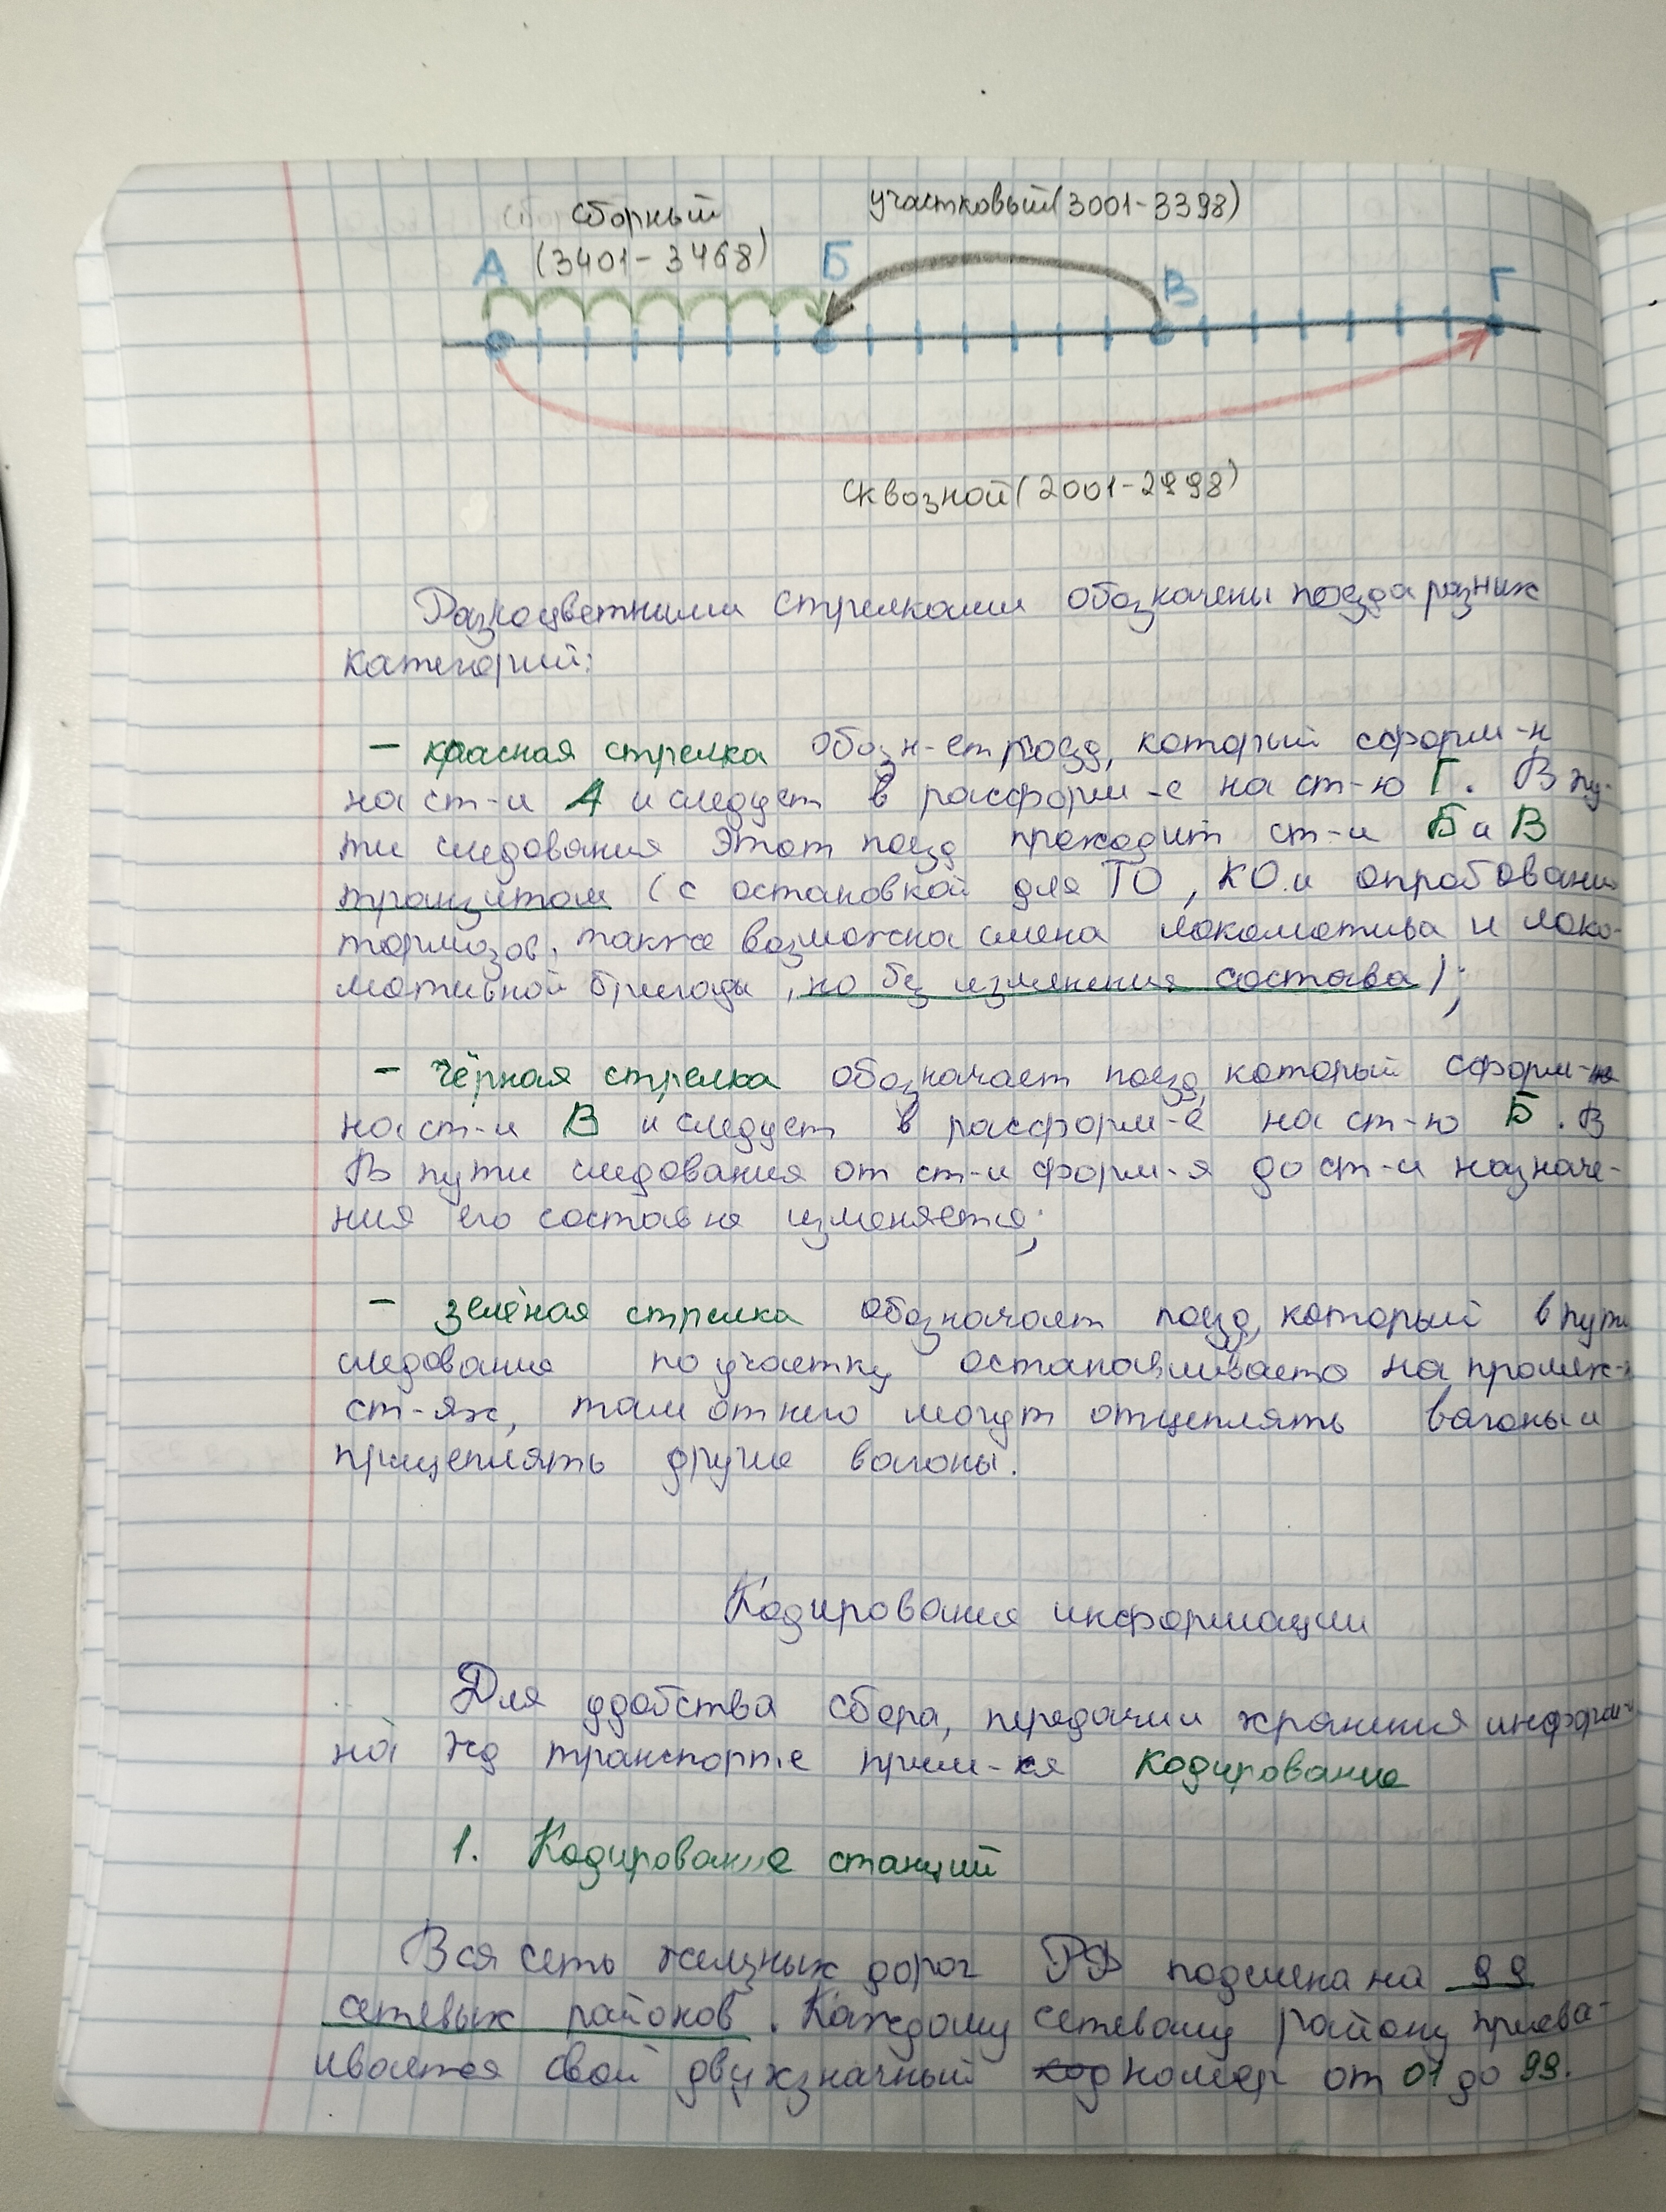 сборный участковый (3001-3398)
(3401-3468)
А Б В Г
сквозной (2001-2998)
Разноцветными стрелками обозначены поезда разных
категорий:
- красная стрелка обозн-ет поезд, который сформ-н
на ст-и А и следует в расформ-е на ст-ю Г. В пу-
ти следования этот поезд проходит ст-и Б и В
транзитом (с остановкой для ТО, КО и опробовани
тормозов, также возможна смена локомотива и локо-
мотивной бригады, но без изменения состава);
- чёрная стрелка обозначает поезд, который сформ-н
на ст-и В и следует в расформ-е на ст-ю Б. В
В пути следования от ст-и форм-я до ст-и назначе-
ния его состав не изменяется;
- зелёная стрелка обозначает поезд, который в пути
следования по участку останавливается на пром
ст-ях, там от него могут отцеплять вагоны и
прицеплять другие вагоны.
Кодирования информации
Для удобства сбора, передачи и хранения информ-и
на жд транспорте прим-ся кодирование
1. Кодирование станций
Вся сеть желзных дорог РФ поделена на 99
сетевых районов. Каждому сетевому району присва-
ивается свой двухзначный код номер от 01 до 99.